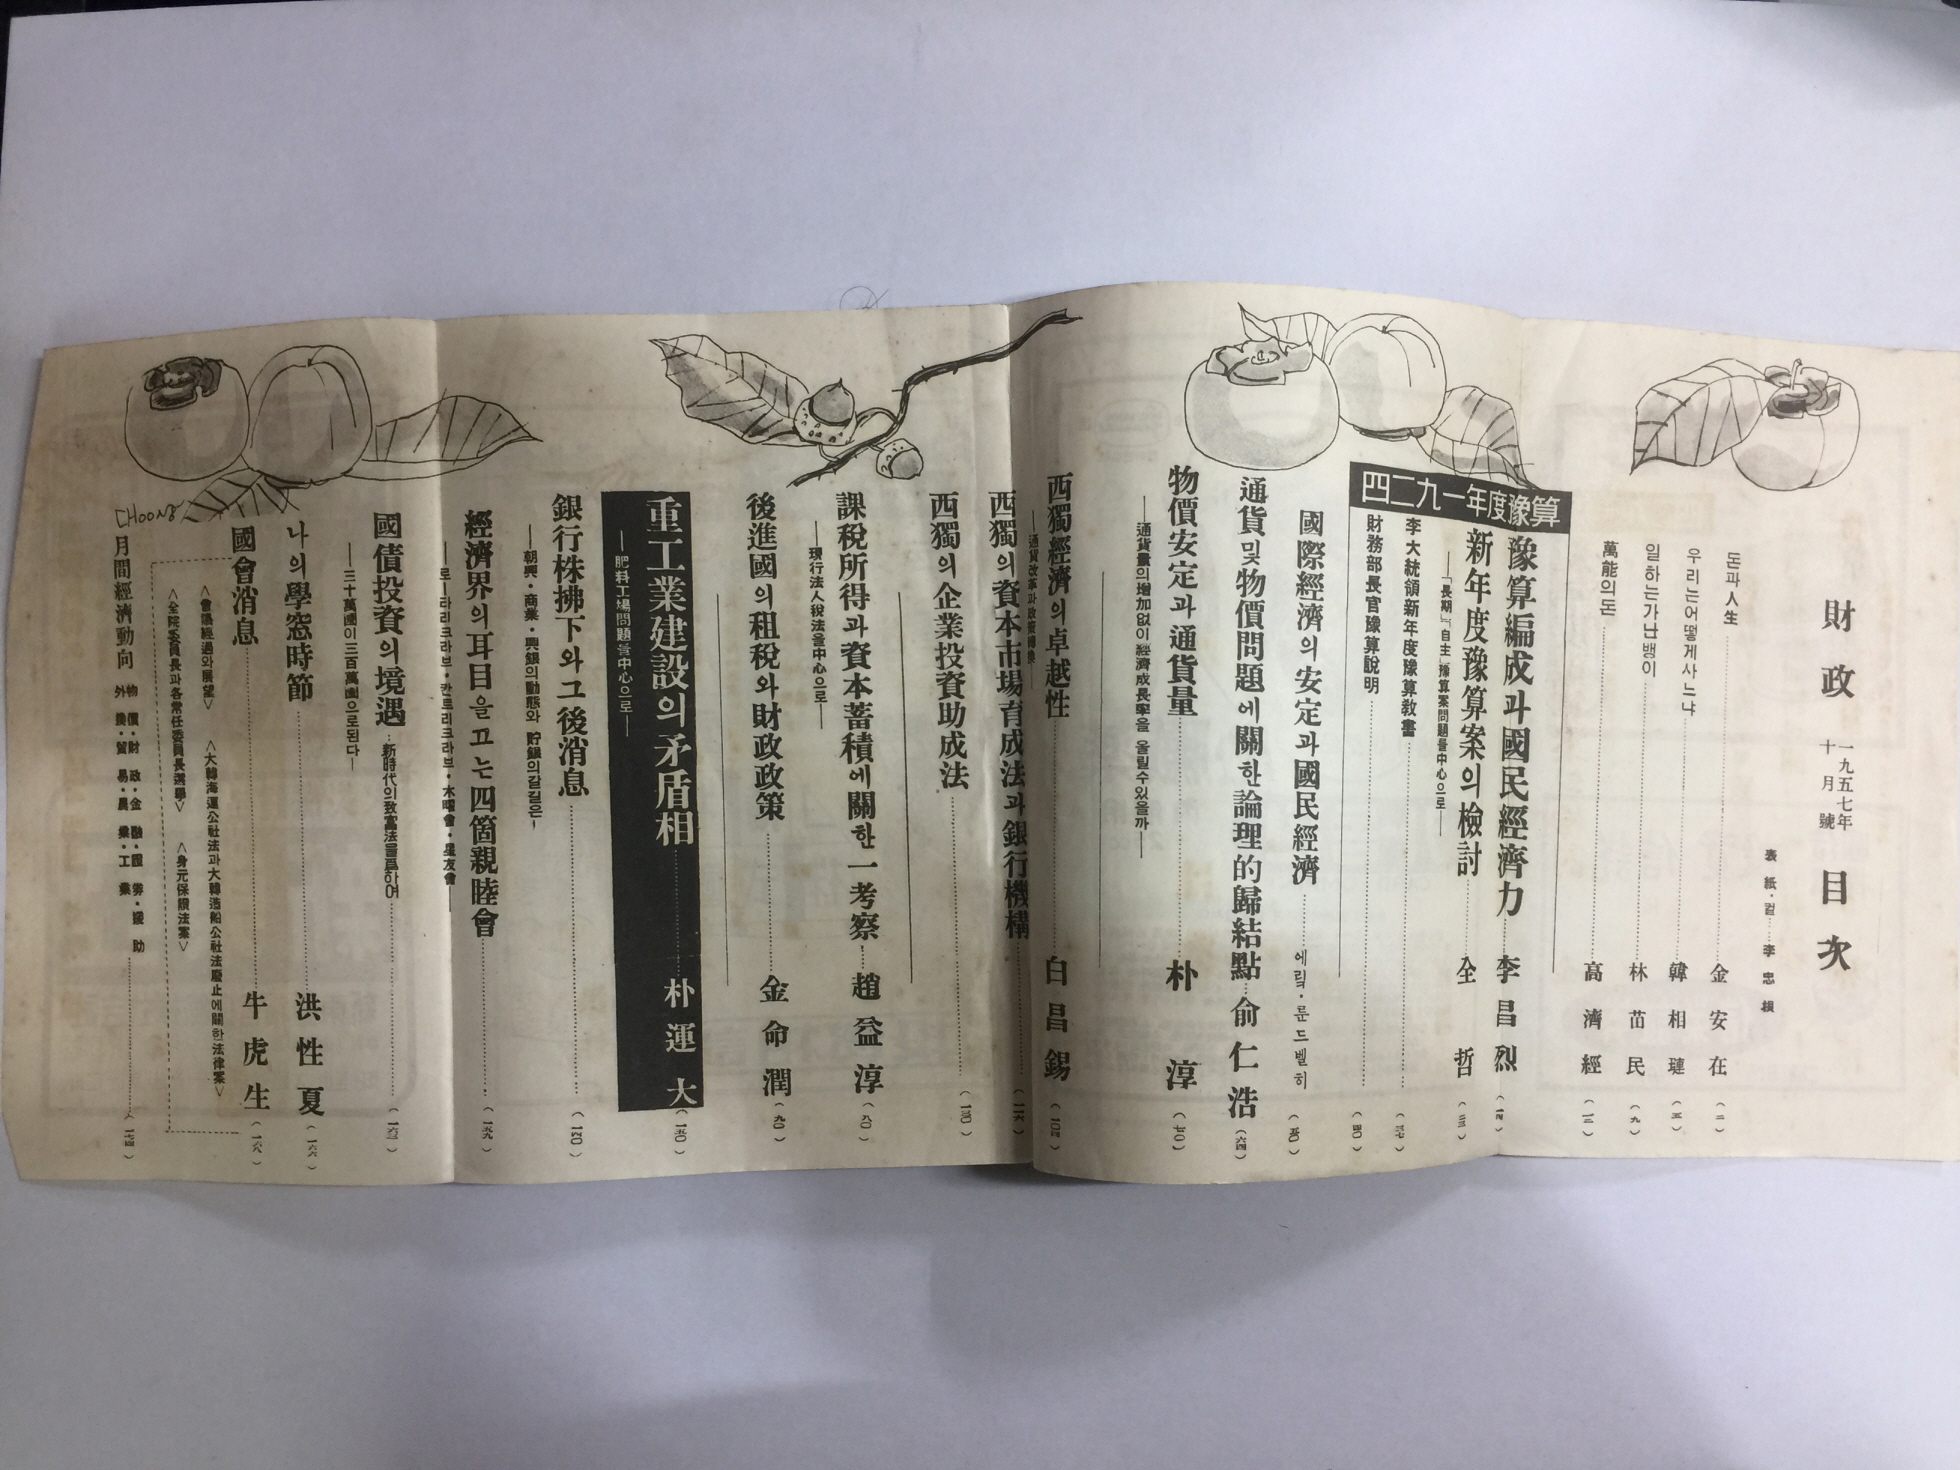 財政 一九五七年 十月號 目次
表紙·컽…李忠根
돈과人生 金安在 (二)
우리는어떻게사느냐 韓相璉 (五)
일하는가난뱅이 林苗民 (九)
萬能의돈 高濟經 (一二)
四二九一年度豫算
豫算編成과國民經濟力 李昌烈 (一四)
新年度豫算案의檢討 全哲 (二三)
—「長期」「自主」豫算案問題를中心으로—
李大統領新年度豫算敎書 (三七)
財務部長官豫算說明 (四〇)
國際經濟의安定과國民經濟 에릭·룬드벨히 (五〇)
通貨및物價問題에關한論理的歸結點 兪仁浩 (六四)
物價安定과通貨量 朴淳 (七〇)
—通貨量의增加없이經濟成長率을 올릴수있을까—
西獨經濟의卓越性 白昌錫
—通貨改革과政策轉換—
西獨의資本市場育成法과銀行機構 (一二六)
西獨의企業投資助成法 (一三〇)
課稅所得과資本蓄積에關한一考察 趙益淳 (八〇)
—現行法人稅法을中心으로—
後進國의租稅와財政政策 金命潤 (九〇)
重工業建設의矛盾相 朴運大 (一五〇)
—肥料工場問題를中心으로—
銀行株拂下와그後消息
—朝興·商業·興銀의動態와 貯銀의갈길은—
經濟界의耳目을끄는四箇親睦會 (一五九)
—로—타리크라브·칸트리크라브·水曜會·星友會—
國債投資의境遇…新時代의致富法을爲하여 (一六三)
—三十萬圜이三百萬圜으로된다—
나의學窓時節 洪性夏 (一六六)
國會消息 牛虎生 (一六八)
<會議經過와展望> <大韓海運公社法과大韓造船公社法廢止에關한法律案>
<全院委員長과各常任委員長選擧> <身元保證法案>
月間經濟動向 物價·財政·金融·證券·援助
外換·貿易·農業·工業
CHOONG